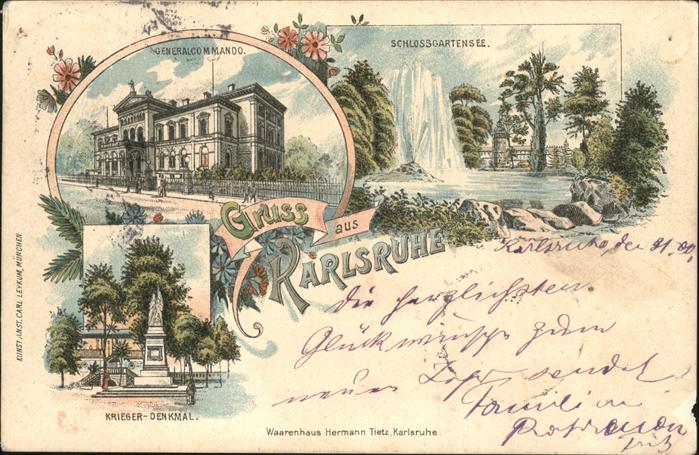 GENERALCOMMANDO.
SCHLOSSGARTENSEE.
Gruss
aus
KARLSRUHE
Karlsruhe, den 31.
die herzlichsten
Glückwünsche zum
neuen Jahr sendet
Familie
Fritz
KRIEGER-DENKMAL.
KUNST-ANST. CARL LEYKUM, MÜNCHEN
Waarenhaus Hermann Tietz, Karlsruhe.